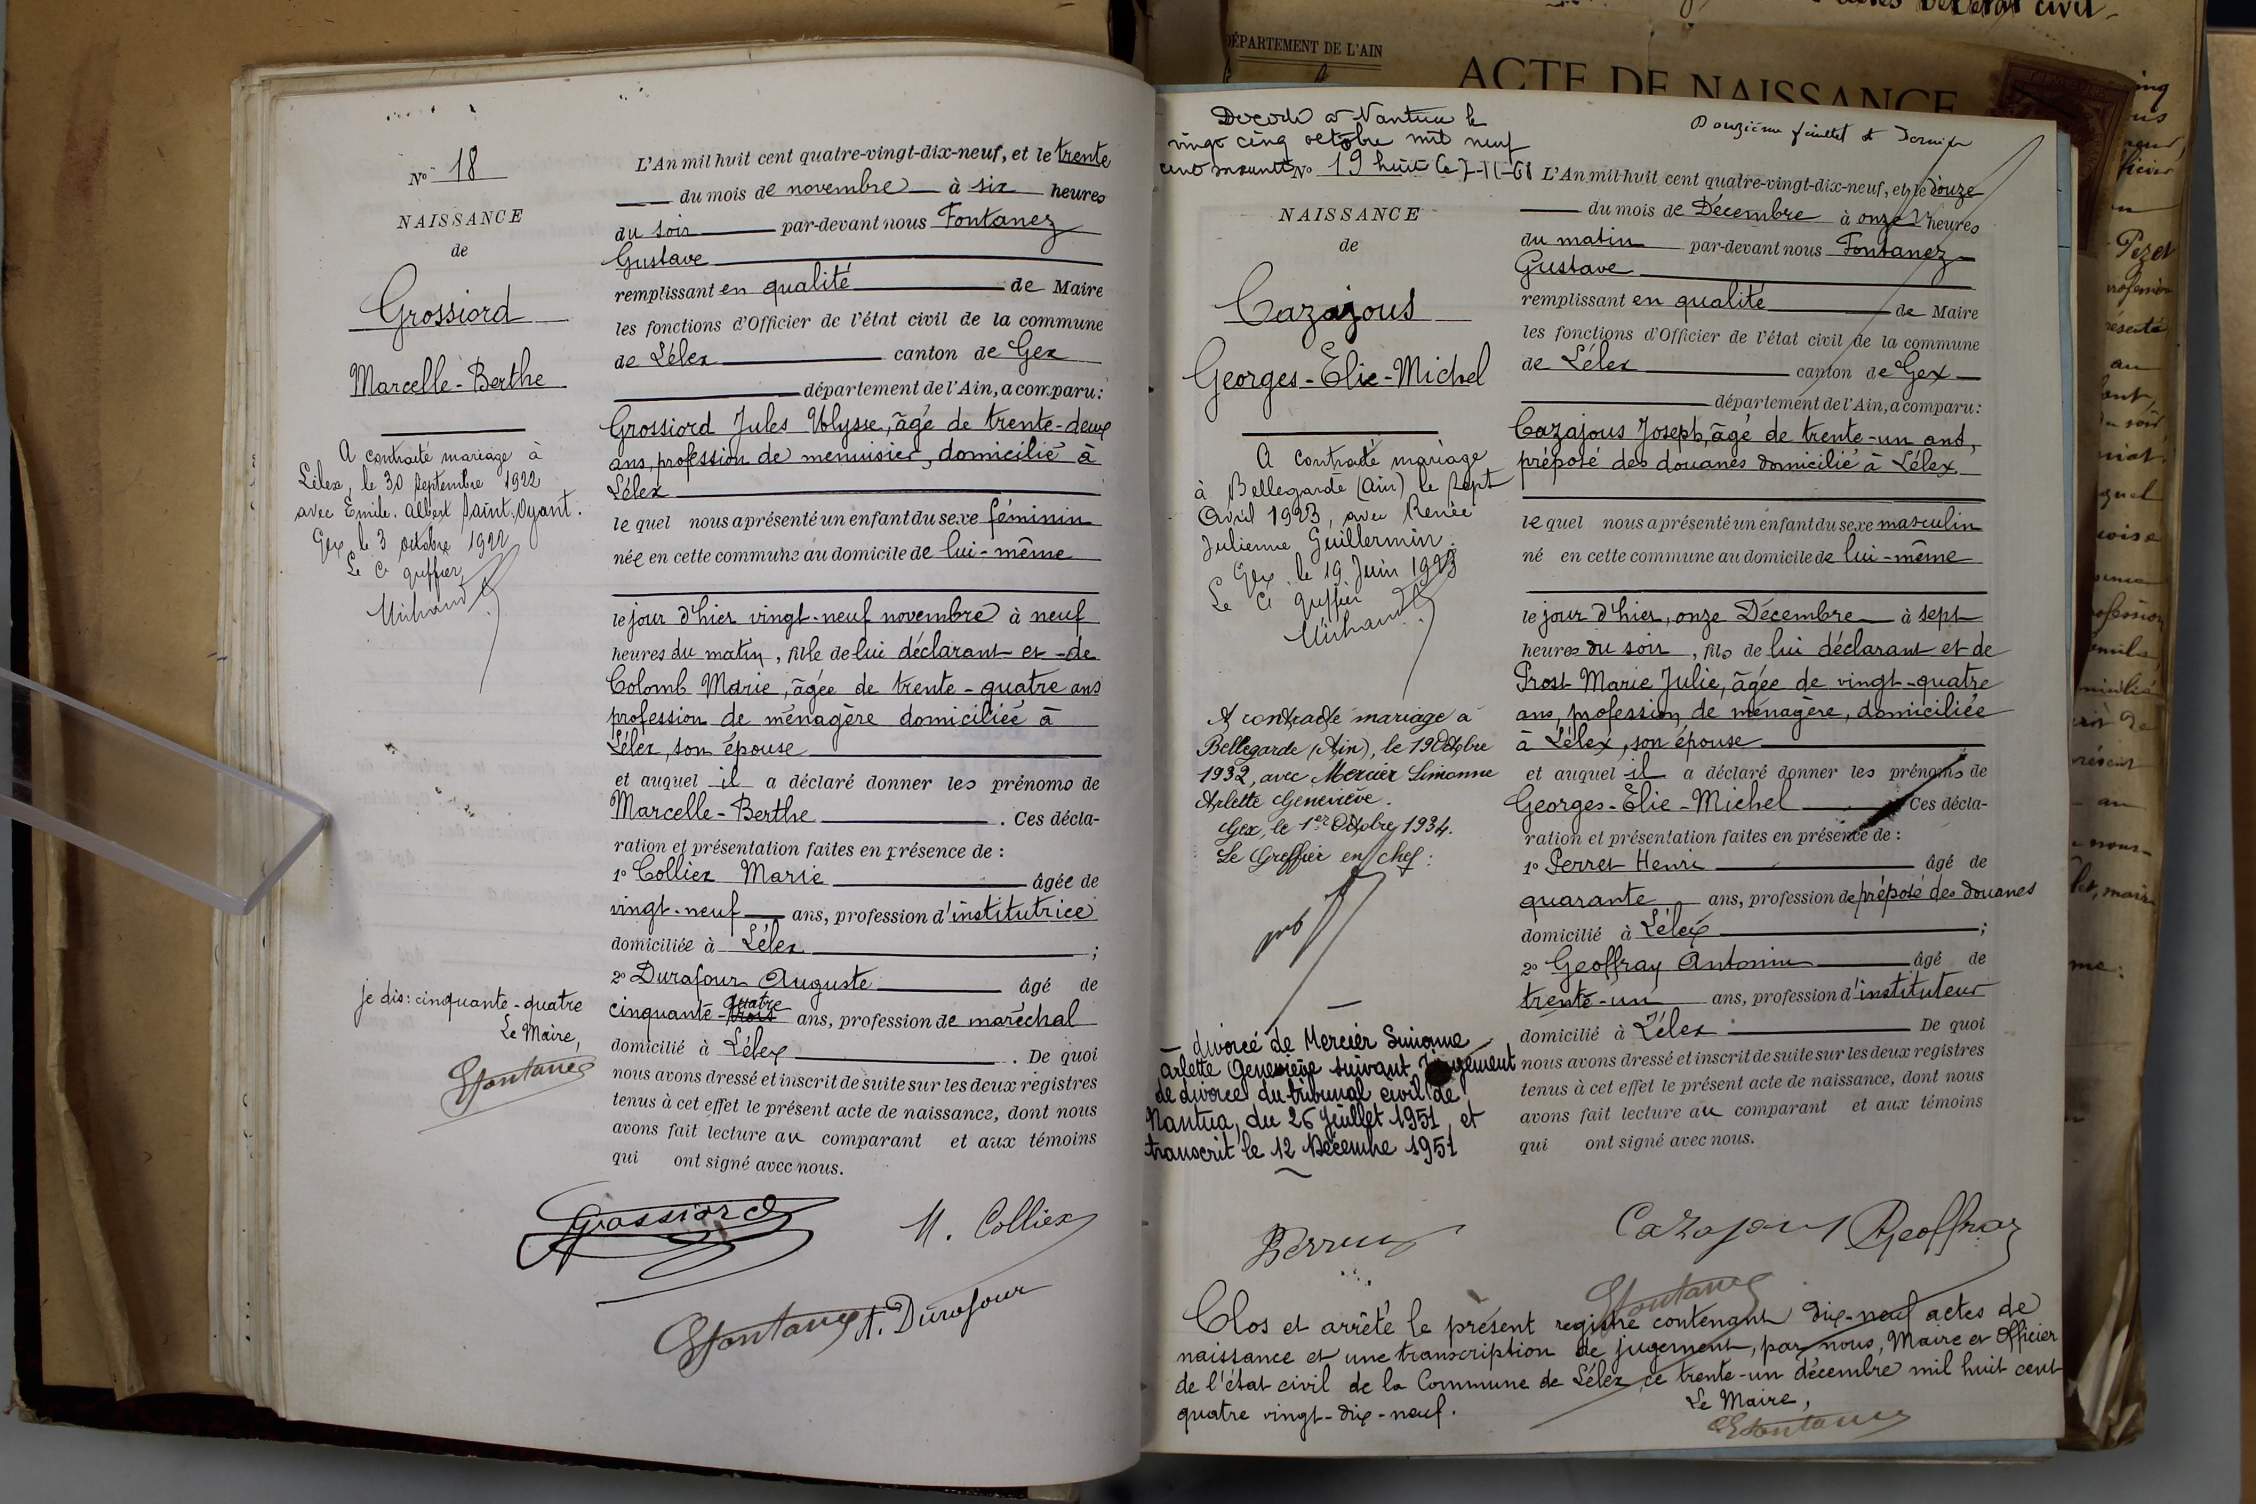 N° 18
NAISSANCE
de
Grossiord
Marcelle-Berthe
A contracté mariage à
Lélex, le 30 septembre 1922
avec Emile. Albert Saint-Oyant.
Gex le 3 octobre 1922
Le Cis greffier
Michaud
je dis: cinquante-quatre
Le Maire,
GFontanez
L'An mil huit cent quatre-vingt-dix-neuf, et le trente
du mois de novembre à six heures
du soir par-devant nous Fontanez
Gustave
remplissant en qualité de Maire
les fonctions d'Officier de l'état civil de la commune
de Lélex canton de Gex
département de l'Ain, a comparu:
Grossiord Jules Ulysse, âgé de trente-deux
ans, profession de menuisier, domicilié à
Lélex
le quel nous a présenté un enfant du sexe féminin
née en cette commune au domicile de lui-même
le jour d'hier vingt-neuf novembre à neuf
heures du matin, fille de lui déclarant et de
Colomb Marie, âgée de trente-quatre ans
profession de ménagère domiciliée à
Lélex, son épouse
et auquel il a déclaré donner les prénoms de
Marcelle-Berthe. Ces décla-
ration et présentation faites en présence de :
1° Colliex Marie âgée de
vingt-neuf ans, profession d'institutrice
domiciliée à Lélex ;
2° Durafour Auguste âgé de
quatre
cinquante-trois ans, profession de maréchal
domicilié à Lélex. De quoi
nous avons dressé et inscrit de suite sur les deux registres
tenus à cet effet le présent acte de naissance, dont nous
avons fait lecture au comparant et aux témoins
qui ont signé avec nous.
Grossiord
M. Colliex
GFontanez A. Durafour
actes de l'état civil.
DÉPARTEMENT DE L'AIN
ACTE DE NAISSANCE
Décédé à Nantua le
vingt cinq octobre mil neuf
cent soixante huit le 7-11-68
Douzième feuillet et dernier
N° 19
NAISSANCE
de
Cazajous
Georges-Élie-Michel
A contracté mariage
à Bellegarde (Ain) le sept
Avril 1923, avec Renée
Julienne Guillermin.
Gex, le 19 Juin 1923
Le Cis greffier
Michaud
A contracté mariage à
Bellegarde (Ain), le 19 Octobre
1932, avec Mercier Simonne
Arlette Geneviève.
Gex, le 1er Octobre 1934.
Le Greffier en chef:
divorcé de Mercier Simonne
arlette Geneviève suivant jugement
de divorce du tribunal civil de
Nantua, du 26 Juillet 1951 et
transcrit le 12 Décembre 1951
L'An mil huit cent quatre-vingt-dix-neuf, et le douze
du mois de Décembre à onze heures
du matin par-devant nous Fontanez
Gustave
remplissant en qualité de Maire
les fonctions d'Officier de l'état civil de la commune
de Lélex canton de Gex
département de l'Ain, a comparu:
Cazajous Joseph, âgé de trente-un ans,
préposé des douanes domicilié à Lélex
le quel nous a présenté un enfant du sexe masculin
né en cette commune au domicile de lui-même
le jour d'hier, onze Décembre à sept
heures du soir, fils de lui déclarant et de
Prost Marie Julie, âgée de vingt-quatre
ans, profession de ménagère, domiciliée
à Lélex, son épouse
et auquel il a déclaré donner les prénoms de
Georges-Élie-Michel. Ces décla-
ration et présentation faites en présence de :
1° Perret Henri âgé de
quarante ans, profession de préposé des douanes
domicilié à Lélex ;
2° Geoffray Antonin âgé de
trente-un ans, profession d'instituteur
domicilié à Lélex. De quoi
nous avons dressé et inscrit de suite sur les deux registres
tenus à cet effet le présent acte de naissance, dont nous
avons fait lecture au comparant et aux témoins
qui ont signé avec nous.
Cazajous AGeoffray
Perret
GFontanez
Clos et arrêté le présent registre contenant dix-neuf actes de
naissance et une transcription de jugement, par nous, Maire et Officier
de l'état civil de la Commune de Lélex, ce trente-un décembre mil huit cent
quatre vingt-dix-neuf.
Le Maire,
GFontanez